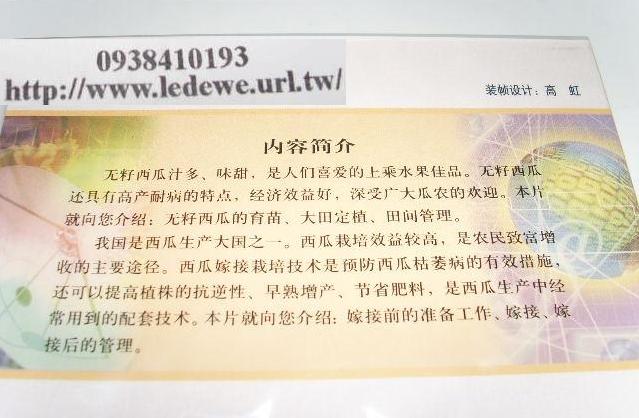 0938410193
http://www.ledewe.url.tw/
装帧设计：高 虹
内容简介
无籽西瓜汁多、味甜，是人们喜爱的上乘水果佳品。无籽西瓜
还具有高产耐病的特点，经济效益好，深受广大瓜农的欢迎。本片
就向您介绍：无籽西瓜的育苗、大田定植、田间管理。
我国是西瓜生产大国之一。西瓜栽培效益较高，是农民致富增
收的主要途径。西瓜嫁接栽培技术是预防西瓜枯萎病的有效措施，
还可以提高植株的抗逆性、早熟增产、节省肥料，是西瓜生产中经
常用到的配套技术。本片就向您介绍：嫁接前的准备工作、嫁接、嫁
接后的管理。